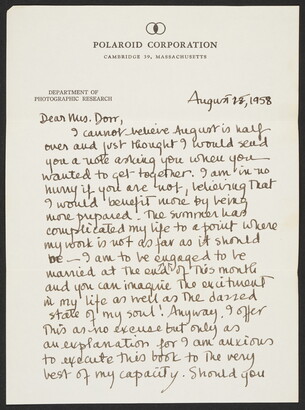 POLAROID CORPORATION
CAMBRIDGE 39, MASSACHUSETTS
DEPARTMENT OF
PHOTOGRAPHIC RESEARCH
August 28, 1958
Dear Mrs. Dorr,
I cannot believe August is half
over and just thought I would send
you a note asking you when you
wanted to get together. I am in no
hurry if you are not, believing that
I would benefit more by being
more prepared. The summer has
complicated my life to a point where
my work is not as far as it should
be — I am to be engaged to be
married at the end of this month
and you can imagine the excitment
in my life as well as the dazzed
state of my soul! Anyway, I offer
this as no excuse but only as
an explanation for I am anxious
to execute this book to the very
best of my capacity. Should you